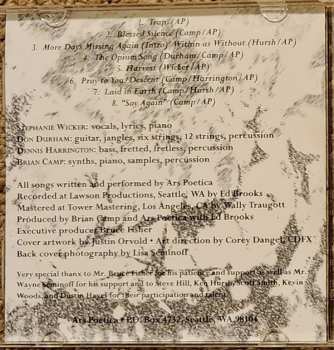 1. Trapt (AP)
2. Blessed Silence (Camp/AP)
3. More Days Missing Again (Intro)/Within as Without (Hursh/AP)
4. The Opium Song (Durham/Camp/AP)
5. Harvest (Wicker/AP)
6. Pray to You/Descent (Camp/Harrington/AP)
7. Laid in Earth (Camp/Harsh/AP)
8. "Say Again" (Camp/AP)
Stephanie Wicker: vocals, lyrics, piano
Don Durham: guitar, jangles, six strings, 12 strings, percussion
Dennis Harrington: bass, fretted, fretless, percussion
Brian Camp: synths, piano, samples, percussion
All songs written and performed by Ars Poetica
Recorded at Lawson Productions, Seattle, WA by Ed Brooks
Mastered at Tower Mastering, Los Angeles, CA by Wally Traugott
Produced by Brian Camp and Ars Poetica with Ed Brooks
Executive producer Bruce Fisher
Cover artwork by Justin Orvold • Art direction by Corey Dangel, CDFX
Back cover photography by Lisa Seminoff
Very special thanx to Mr. Bruce Fisher for his patience and support as well as Mr.
Wayne Seminoff for his support and to Steve Hill, Ken Hursh, Scott Smith, Kevin
Woods, and Dustin Hazel for their participation and talent.
Ars Poetica • P.O. Box 4732, Seattle, WA 98104